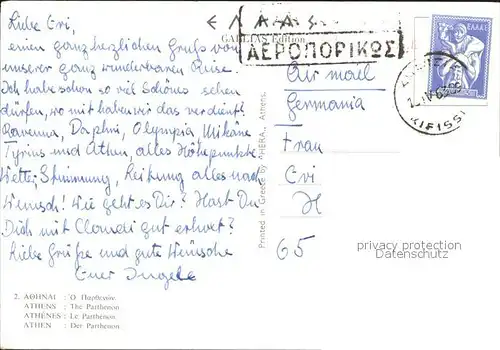 Liebe Evi,
einen ganz herzlichen Gruß von
unserer ganz wunderbaren Reise.
Ich habe schon so viel Schönes sehen
dürfen, wo mit haben wir das verdient?
Ravenna, Daphni, Olympia, Mikäne
Tyrins und Athen, alles Höhepunkte
Wetter, Stimmung, alles nach
Wunsch! Wie geht es Dir? Hast Du
Dich mit Claudi gut erholt?
Liebe Grüße und gute Wünsche
Euer Ingele
2. ΑΘΗΝΑΙ : Ὁ Παρθενών.
ATHENS : The Parthenon.
ATHÈNES : Le Parthénon.
ATHEN : Der Parthenon.
Printed in Greece by "HERA", Athens.
ΕΛΛΑΣ
Edition
ΑΕΡΟΠΟΡΙΚΩΣ
Air mail
Germania
Frau
Evi
H
65
ΕΛΛΑΣ
KIFISSI
privacy protection
oldthing.de